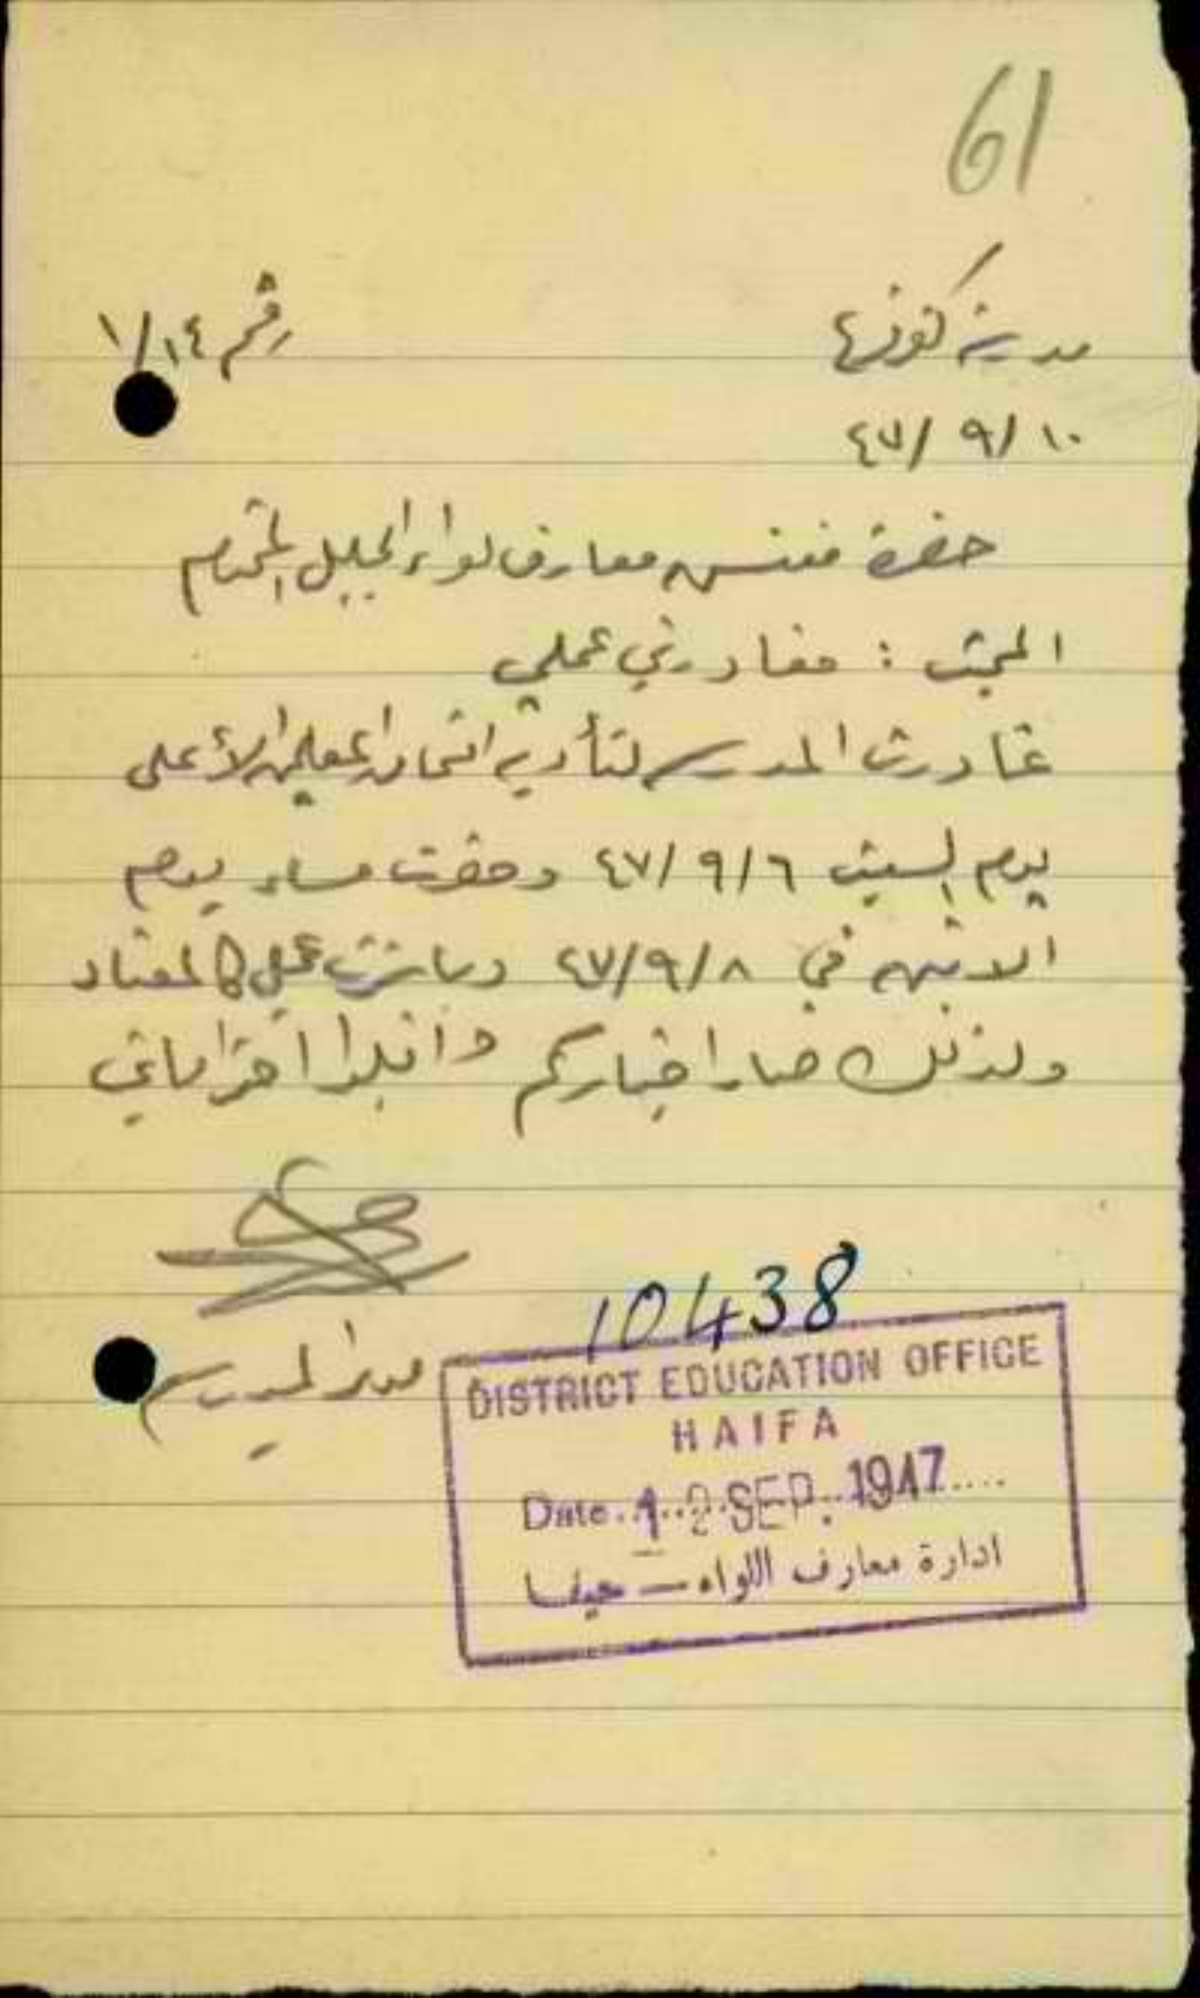 61
مدرسة كفرتا رقم ١/١٤
١٠/ ٩/ ٤٧
حضرة مفتش معارف لواء الجليل المحترم
المبحث : مغادرتي عملي
غادرت المدرسة لتأدية امتحان المعلمين الأعلى
يوم السبت ٦/ ٩/ ٤٧ وحضرت مساء يوم
الاثنين في ٨/ ٩/ ٤٧ وباشرت عملي كالمعتاد
ولذلك صار اخباركم واقبلوا احتراماتي
مدير المدرسة
10438
DISTRICT EDUCATION OFFICE
HAIFA
Date 12 SEP. 1947
ادارة معارف اللواء — حيفا